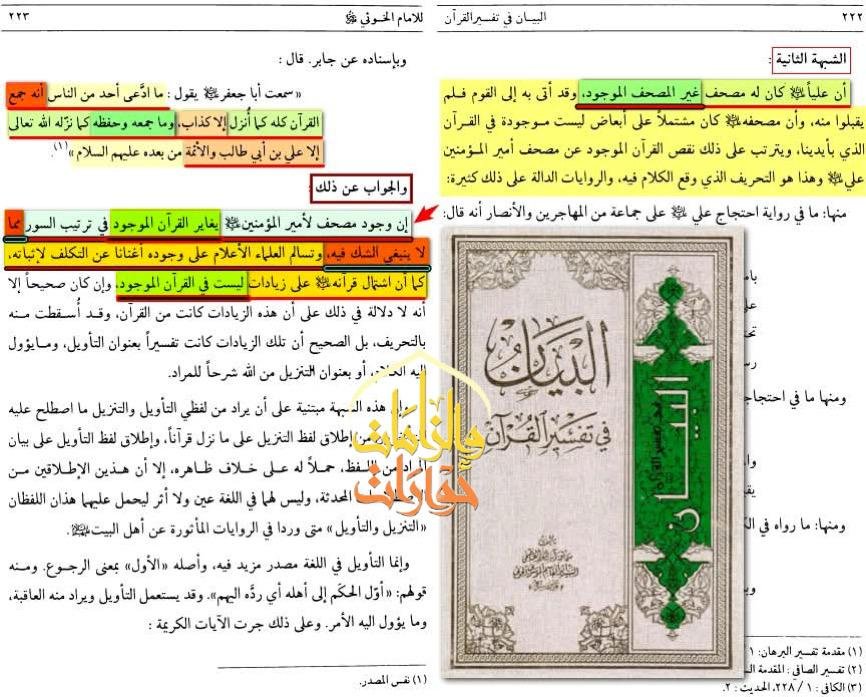 ٢٢٢
البيان في تفسير القرآن
الشبهة الثانية :
أن علياً ﷺ كان له مصحف غير المصحف الموجود، وقد أتى به إلى القوم فلم
يقبلوا منه، وأن مصحفه ﷺ كان مشتملاً على أبعاض ليست موجودة في القرآن
الذي بأيدينا، ويترتب على ذلك نقص القرآن الموجود عن مصحف أمير المؤمنين
علي ﷺ وهذا هو التحريف الذي وقع الكلام فيه، والروايات الدالة على ذلك كثيرة:
منها: ما في رواية احتجاج علي ﷺ على جماعة من المهاجرين والأنصار أنه قال:
ومنها ما في احتجاج
ومنها: ما رواه في
(١) مقدمة تفسير البرهان:
(٢) تفسير الصافي: المقدمة
(٣) الكافي: ١ / ٢٢٨، الحديث: ٢.
البيان
في تفسير القرآن
البيان
للامام الخوئي ﷺ
٢٢٣
وبإسناده عن جابر. قال :
«سمعت أبا جعفر ﷺ يقول : ما ادّعى أحد من الناس أنه جمع
القرآن كله كما أُنزل إلا كذاب، وما جمعه وحفظه كما نزّله الله تعالى
إلا علي بن أبي طالب والأئمة من بعده عليهم السلام»(١).
والجواب عن ذلك :
إن وجود مصحف لأمير المؤمنين ﷺ يغاير القرآن الموجود في ترتيب السور مما
لا ينبغي الشك فيه، وتسالم العلماء الأعلام على وجوده أغنانا عن التكلف لإثباته،
كما أن اشتمال قرآنه ﷺ على زيادات ليست في القرآن الموجود، وإن كان صحيحاً إلا
أنه لا دلالة في ذلك على أن هذه الزيادات كانت من القرآن، وقد أُسقطت منه
بالتحريف، بل الصحيح أن تلك الزيادات كانت تفسيراً بعنوان التأويل، وما يؤول
إليه الكلام، أو بعنوان التنزيل من الله شرحاً للمراد.
وإن هذه الشبهة مبتنية على أن يراد من لفظي التأويل والتنزيل ما اصطلح عليه
من إطلاق لفظ التنزيل على ما نزل قرآناً، وإطلاق لفظ التأويل على بيان
المراد من اللفظ، حملاً له على خلاف ظاهره، إلا أن هذين الإطلاقين من
المحدثة، وليس لهما في اللغة عين ولا أثر ليحمل عليهما هذان اللفظان
«التنزيل والتأويل» متى وردا في الروايات المأثورة عن أهل البيت ﷺ.
وإنما التأويل في اللغة مصدر مزيد فيه، وأصله «الأول» بمعنى الرجوع. ومنه
قولهم: «أوّل الحكَم إلى أهله أي ردَّه اليهم». وقد يستعمل التأويل ويراد منه العاقبة،
وما يؤول اليه الأمر. وعلى ذلك جرت الآيات الكريمة :
(١) نفس المصدر.
حوارات
وإلزامات